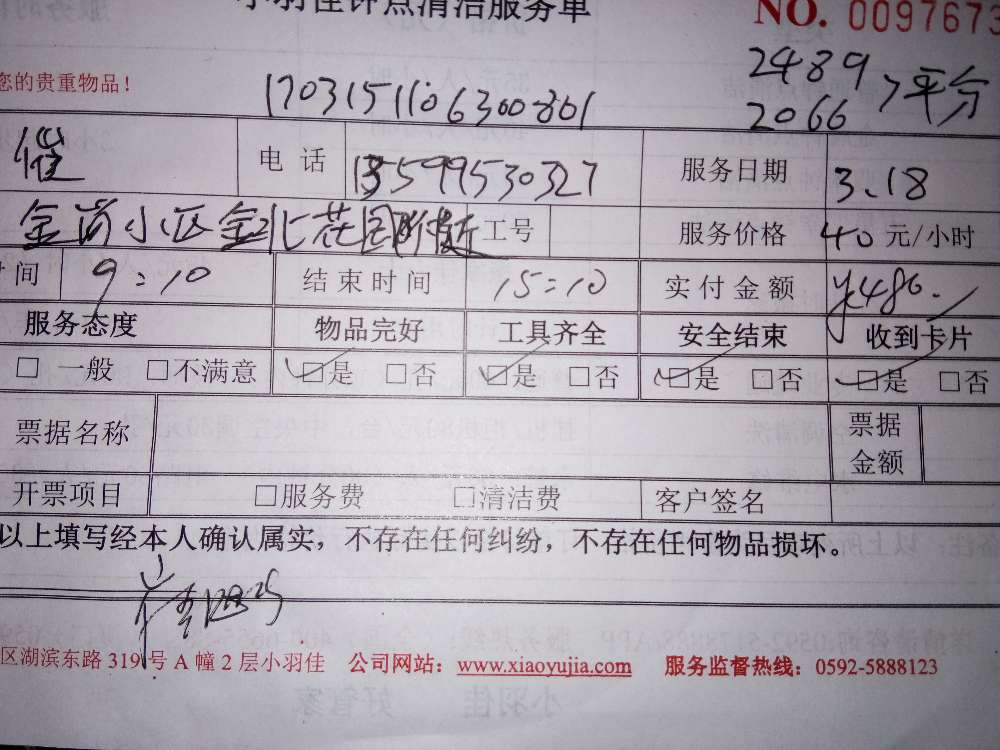 小羽佳钟点清洁服务单 NO. 0097673
您的贵重物品! 1703151106300801 2489 2066 >平分
催 电话 13599530327 服务日期 3.18
金尚小区金北花园附近 工号 服务价格 40 元/小时
时间 9:10 结束时间 15:10 实付金额 ¥480.
服务态度 物品完好 工具齐全 安全结束 收到卡片
□ 一般 □不满意 □是 □否 □是 □否 □是 □否 □是 □否
票据名称 票据金额
开票项目 □服务费 □清洁费 客户签名
以上填写经本人确认属实，不存在任何纠纷，不存在任何物品损坏。
区湖滨东路 319 号 A 幢 2 层小羽佳 公司网站：www.xiaoyujia.com 服务监督热线：0592-5888123